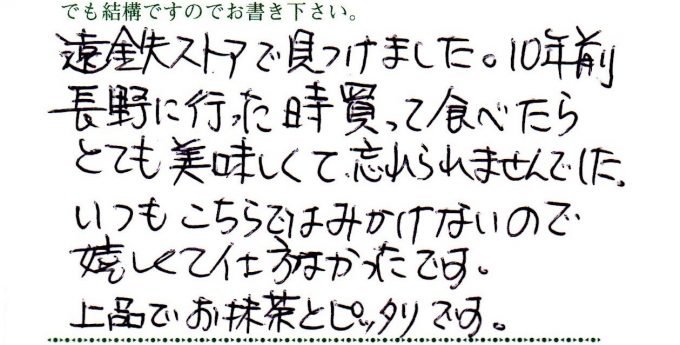 でも結構ですのでお書き下さい。
遠鉄ストアで見つけました。10年前
長野に行った時買って食べたら
とても美味しくて忘れられませんでした。
いつもこちらではみかけないので
嬉しくて仕方なかったです。
上品でお抹茶とピッタリです。